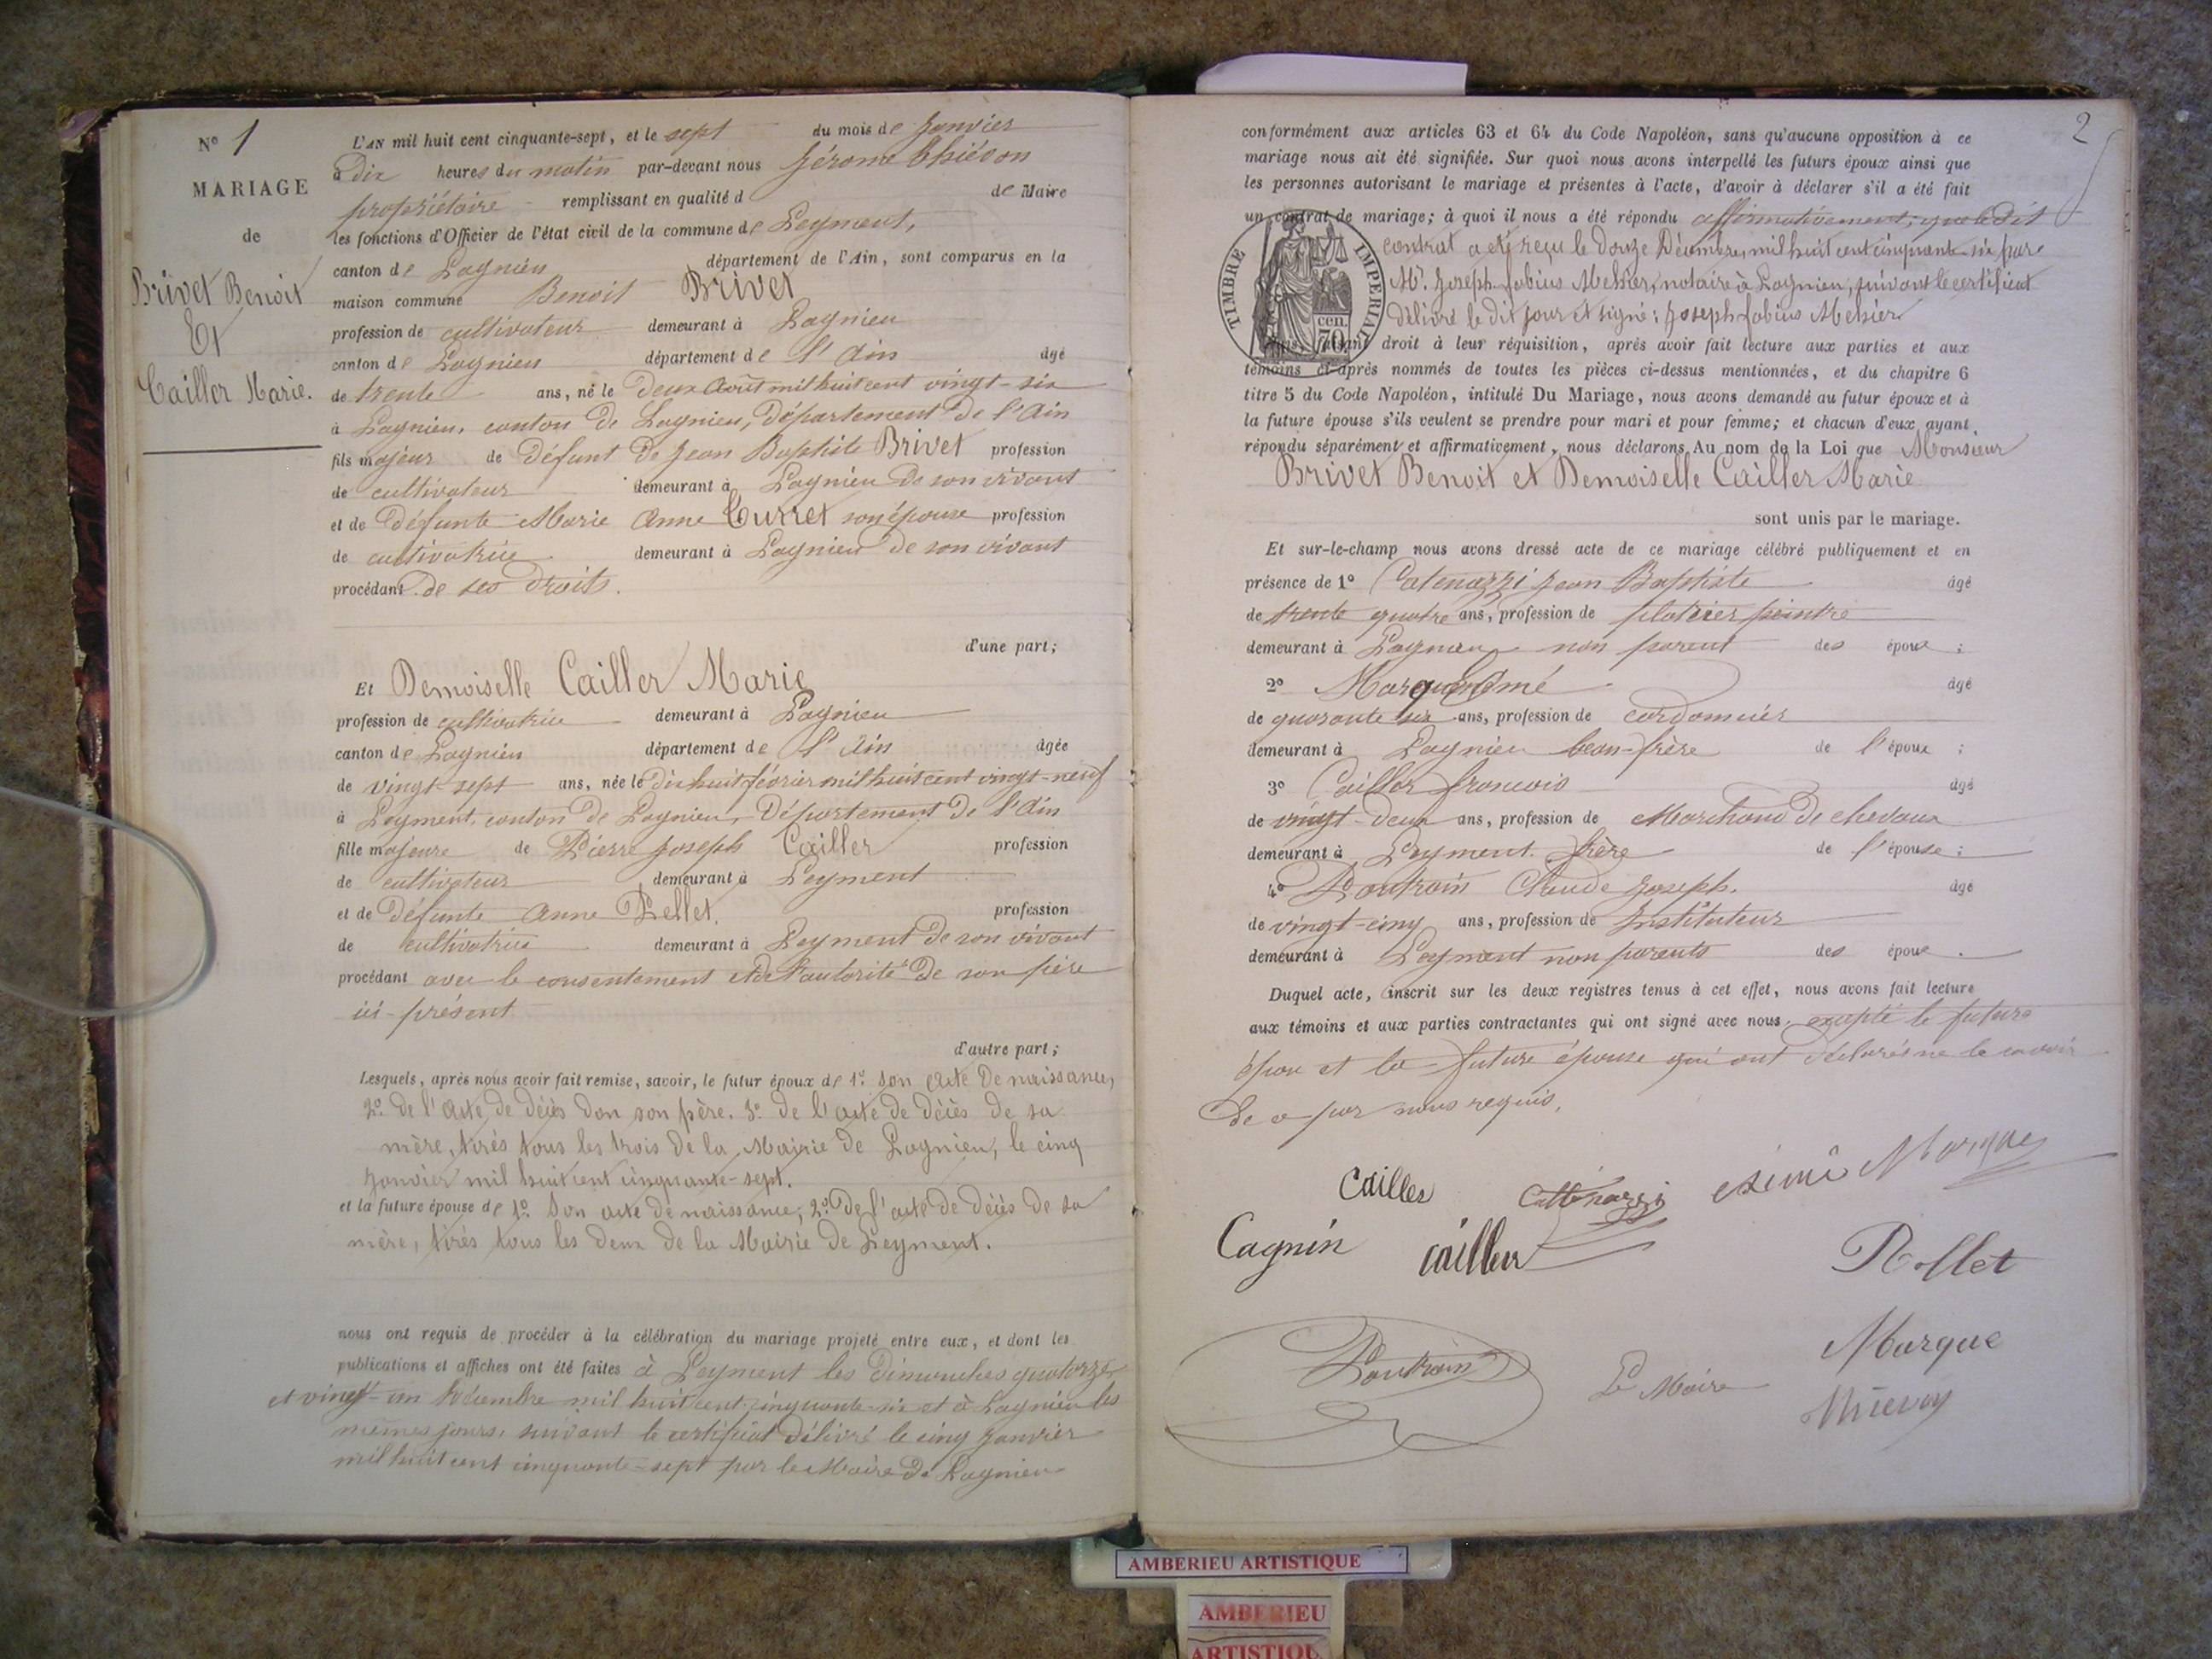 N° 1
MARIAGE
de
Brivet Benoit
Et
Cailler Marie.
L'AN mil huit cent cinquante-sept, et le sept du mois de Janvier
à Dix heures du matin par-devant nous Jérome Thiévon
propriétaire remplissant en qualité d de Maire
les fonctions d'Officier de l'état civil de la commune de Leyment,
canton de Lagnieu département de l'Ain, sont comparus en la
maison commune Benoit Brivet
profession de cultivateur demeurant à Lagnieu
canton de Lagnieu département de l'Ain âgé
de trente ans, né le deux Août mil huit cent vingt-six
à Lagnieu, canton de Lagnieu, Département de l'Ain
fils majeur de défunt de Jean Baptiste Brivet profession
de cultivateur demeurant à Lagnieu de son vivant
et de défunte Marie Anne Curret son épouse profession
de cultivatrice demeurant à Lagnieu de son vivant
procédant de ses droits.
d'une part;
Et Demoiselle Cailler Marie
profession de cultivatrice demeurant à Lagnieu
canton de Lagnieu département de l'Ain âgée
de vingt-sept ans, née le dix huit février mil huit cent vingt-neuf
à Leyment, canton de Lagnieu, Département de l'Ain
fille majeure de Pierre Joseph Cailler profession
de cultivateur demeurant à Leyment
et de défunte Anne Pellet. profession
de cultivatrice demeurant à Leyment de son vivant
procédant avec le consentement et de l'autorité de son père
ici-présent
d'autre part;
Lesquels, après nous avoir fait remise, savoir, le futur époux de 1° son acte de naissance,
2° de l'acte de décès don son père. 3° de l'acte de décès de sa
mère, tirés tous les trois de la Mairie de Lagnieu, le cinq
Janvier mil huit cent cinquante-sept.
et la future épouse de 1° Son acte de naissance, 2° de l'acte de décès de sa
mère, tirés tous les deux de la Mairie de Leyment.
nous ont requis de procéder à la célébration du mariage projeté entre eux, et dont les
publications et affiches ont été faites à Leyment les dimanches quatorze
et vingt-un Décembre mil huit cent cinquante-six et à Lagnieu les
mêmes jours, suivant le certificat délivré le cinq Janvier
mil huit cent cinquante-sept par le Maire de Lagnieu
2
conformément aux articles 63 et 64 du Code Napoléon, sans qu'aucune opposition à ce
mariage nous ait été signifiée. Sur quoi nous avons interpellé les futurs époux ainsi que
les personnes autorisant le mariage et présentes à l'acte, d'avoir à déclarer s'il a été fait
un contrat de mariage; à quoi il nous a été répondu affirmativement; que le dit
contrat a été reçu le douze Décembre, mil huit cent cinquante-six par
Mr. Joseph-fabius Mehier, notaire à Lagnieu, suivant le certificat
délivré le dit jour et signé: Joseph-fabius Mehier
TIMBRE IMPERIAL
cen. 70
droit à leur réquisition, après avoir fait lecture aux parties et aux
témoins ci-après nommés de toutes les pièces ci-dessus mentionnées, et du chapitre 6
titre 5 du Code Napoléon, intitulé Du Mariage, nous avons demandé au futur époux et à
la future épouse s'ils veulent se prendre pour mari et pour femme; et chacun d'eux ayant
répondu séparément et affirmativement, nous déclarons Au nom de la Loi que Monsieur
Brivet Benoit et Demoiselle Cailler Marie
sont unis par le mariage.
Et sur-le-champ nous avons dressé acte de ce mariage célébré publiquement et en
présence de 1° Catenazzi Jean Baptiste âgé
de trente quatre ans, profession de platrier peintre
demeurant à Lagnieu non parent des époux;
2° Marque Aimé âgé
de quarante six ans, profession de cordonnier
demeurant à Lagnieu beau-frère de l'époux;
3° Cailler françois âgé
de vingt-deux ans, profession de Marchand de chevaux
demeurant à Leyment. frère de l'épouse;
4° Poutrain Claude Joseph. âgé
de vingt-cinq ans, profession de Instituteur
demeurant à Leyment non parents des époux.
Duquel acte, inscrit sur les deux registres tenus à cet effet, nous avons fait lecture
aux témoins et aux parties contractantes qui ont signé avec nous, excepté le future
époux et la future épouse qui ont déclaré ne le savoir
de ce par nous requis.
Cailler Cattenazzi Aimé Marque
Cagnin cailler Rollet
Poutrain Le Maire Marque
Thiévon
AMBERIEU ARTISTIQUE
AMBERIEU
ARTISTIQU